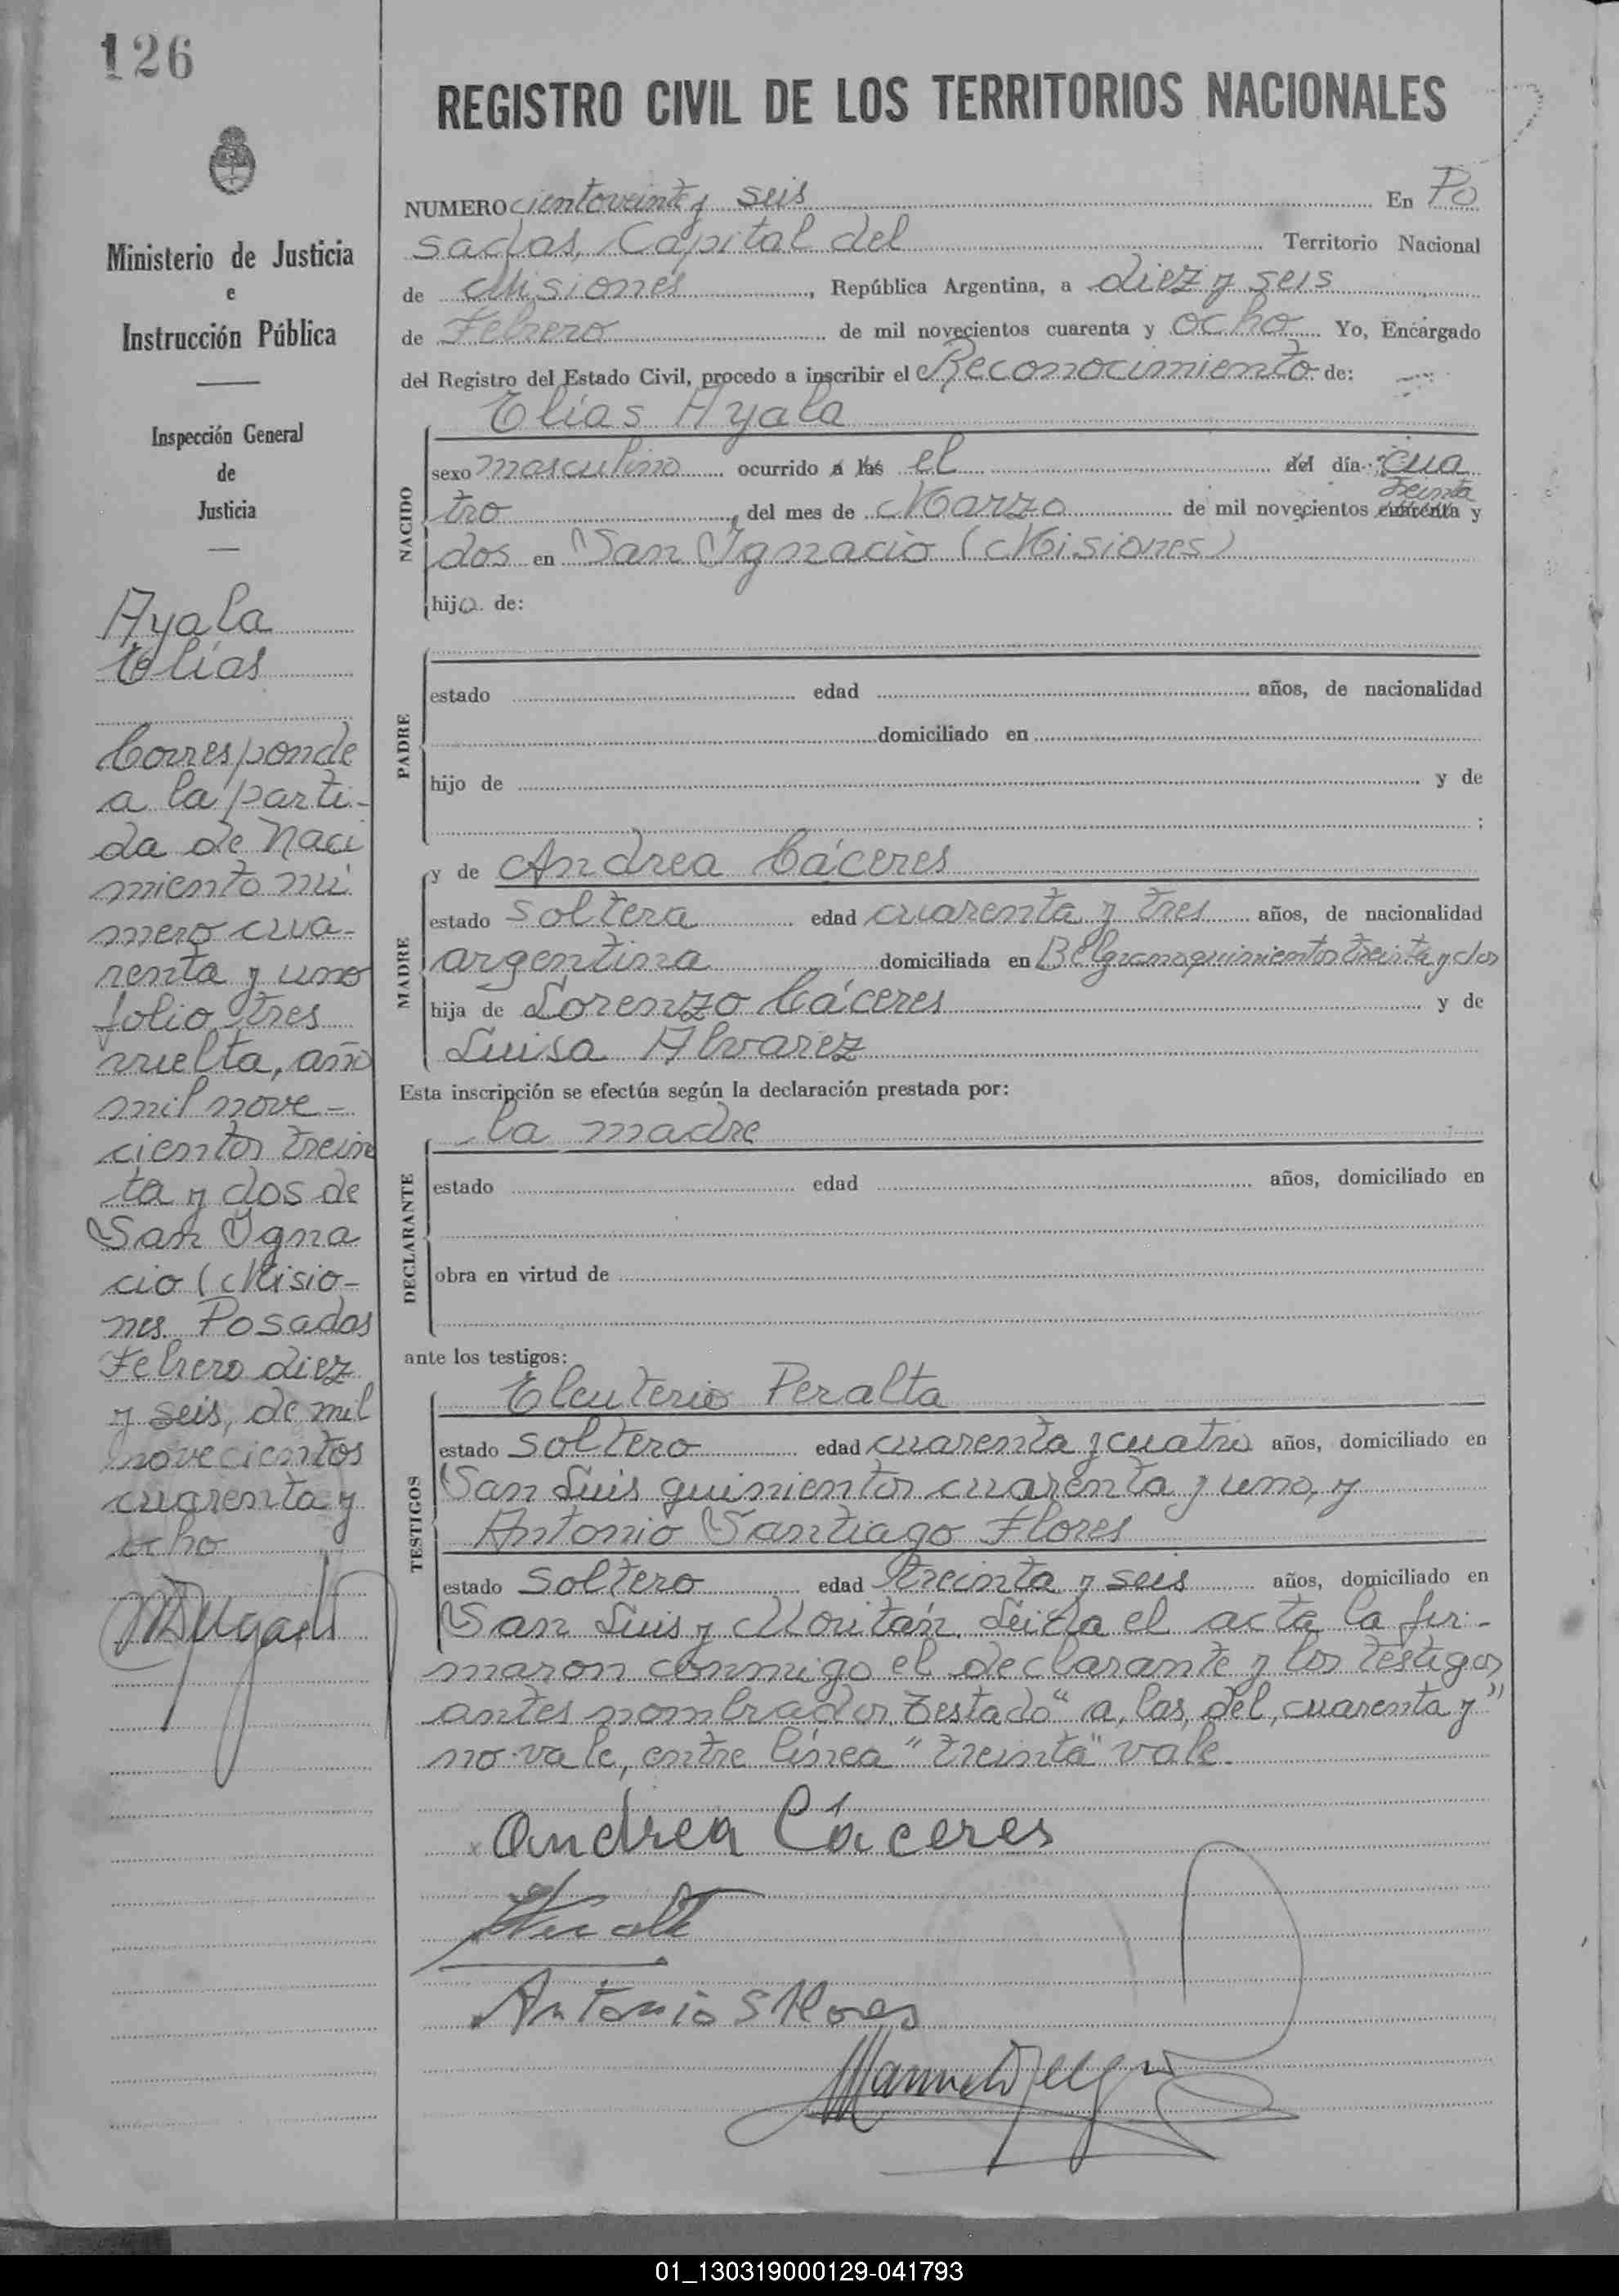 126
REGISTRO CIVIL DE LOS TERRITORIOS NACIONALES
Ministerio de Justicia
e
Instrucción Pública
Inspección General
de
Justicia
Ayala
Elías
Corresponde
a la parti-
da de Naci
miento nú
mero cua-
renta y uno
folio tres
vuelta, año
mil nove-
cientos trein
ta y dos de
San Igna
cio (Misio-
nes. Posadas
Febrero diez
y seis, de mil
novecientos
cuarenta y
ocho
NUMERO cientoveinte y seis En Po
sadas, Capital del Territorio Nacional
de Misiones, República Argentina, a diez y seis
de Febrero de mil novecientos cuarenta y ocho Yo, Encargado
del Registro del Estado Civil, procedo a inscribir el Reconocimiento de:
Elías Ayala
NACIDO
sexo masculino ocurrido a las el del día cua
treinta
tro, del mes de Marzo de mil novecientos cuarenta y
dos en San Ignacio (Misiones)
hijo de:
PADRE
estado edad años, de nacionalidad
domiciliado en
hijo de y de
;
MADRE
y de Andrea Cáceres
estado soltera edad cuarenta y tres años, de nacionalidad
argentina domiciliada en Belgrano quinientos treinta y dos
hija de Lorenzo Cáceres y de
Luisa Alvarez
Esta inscripción se efectúa según la declaración prestada por:
la madre
DECLARANTE
estado edad años, domiciliado en
obra en virtud de
ante los testigos:
TESTIGOS
Eleuterio Peralta
estado soltero edad cuarenta y cuatro años, domiciliado en
San Luis quinientos cuarenta y uno, y
Antonio Santiago Flores
estado soltero edad treinta y seis años, domiciliado en
San Luis y Moritán. Leída el acta la fir-
maron conmigo el declarante y los testigos
antes nombrados. Testado "a, las, del, cuarenta y"
no vale, entre línea "treinta" vale.
x Andrea Cáceres
Antonio S Flores
01_130319000129-041793